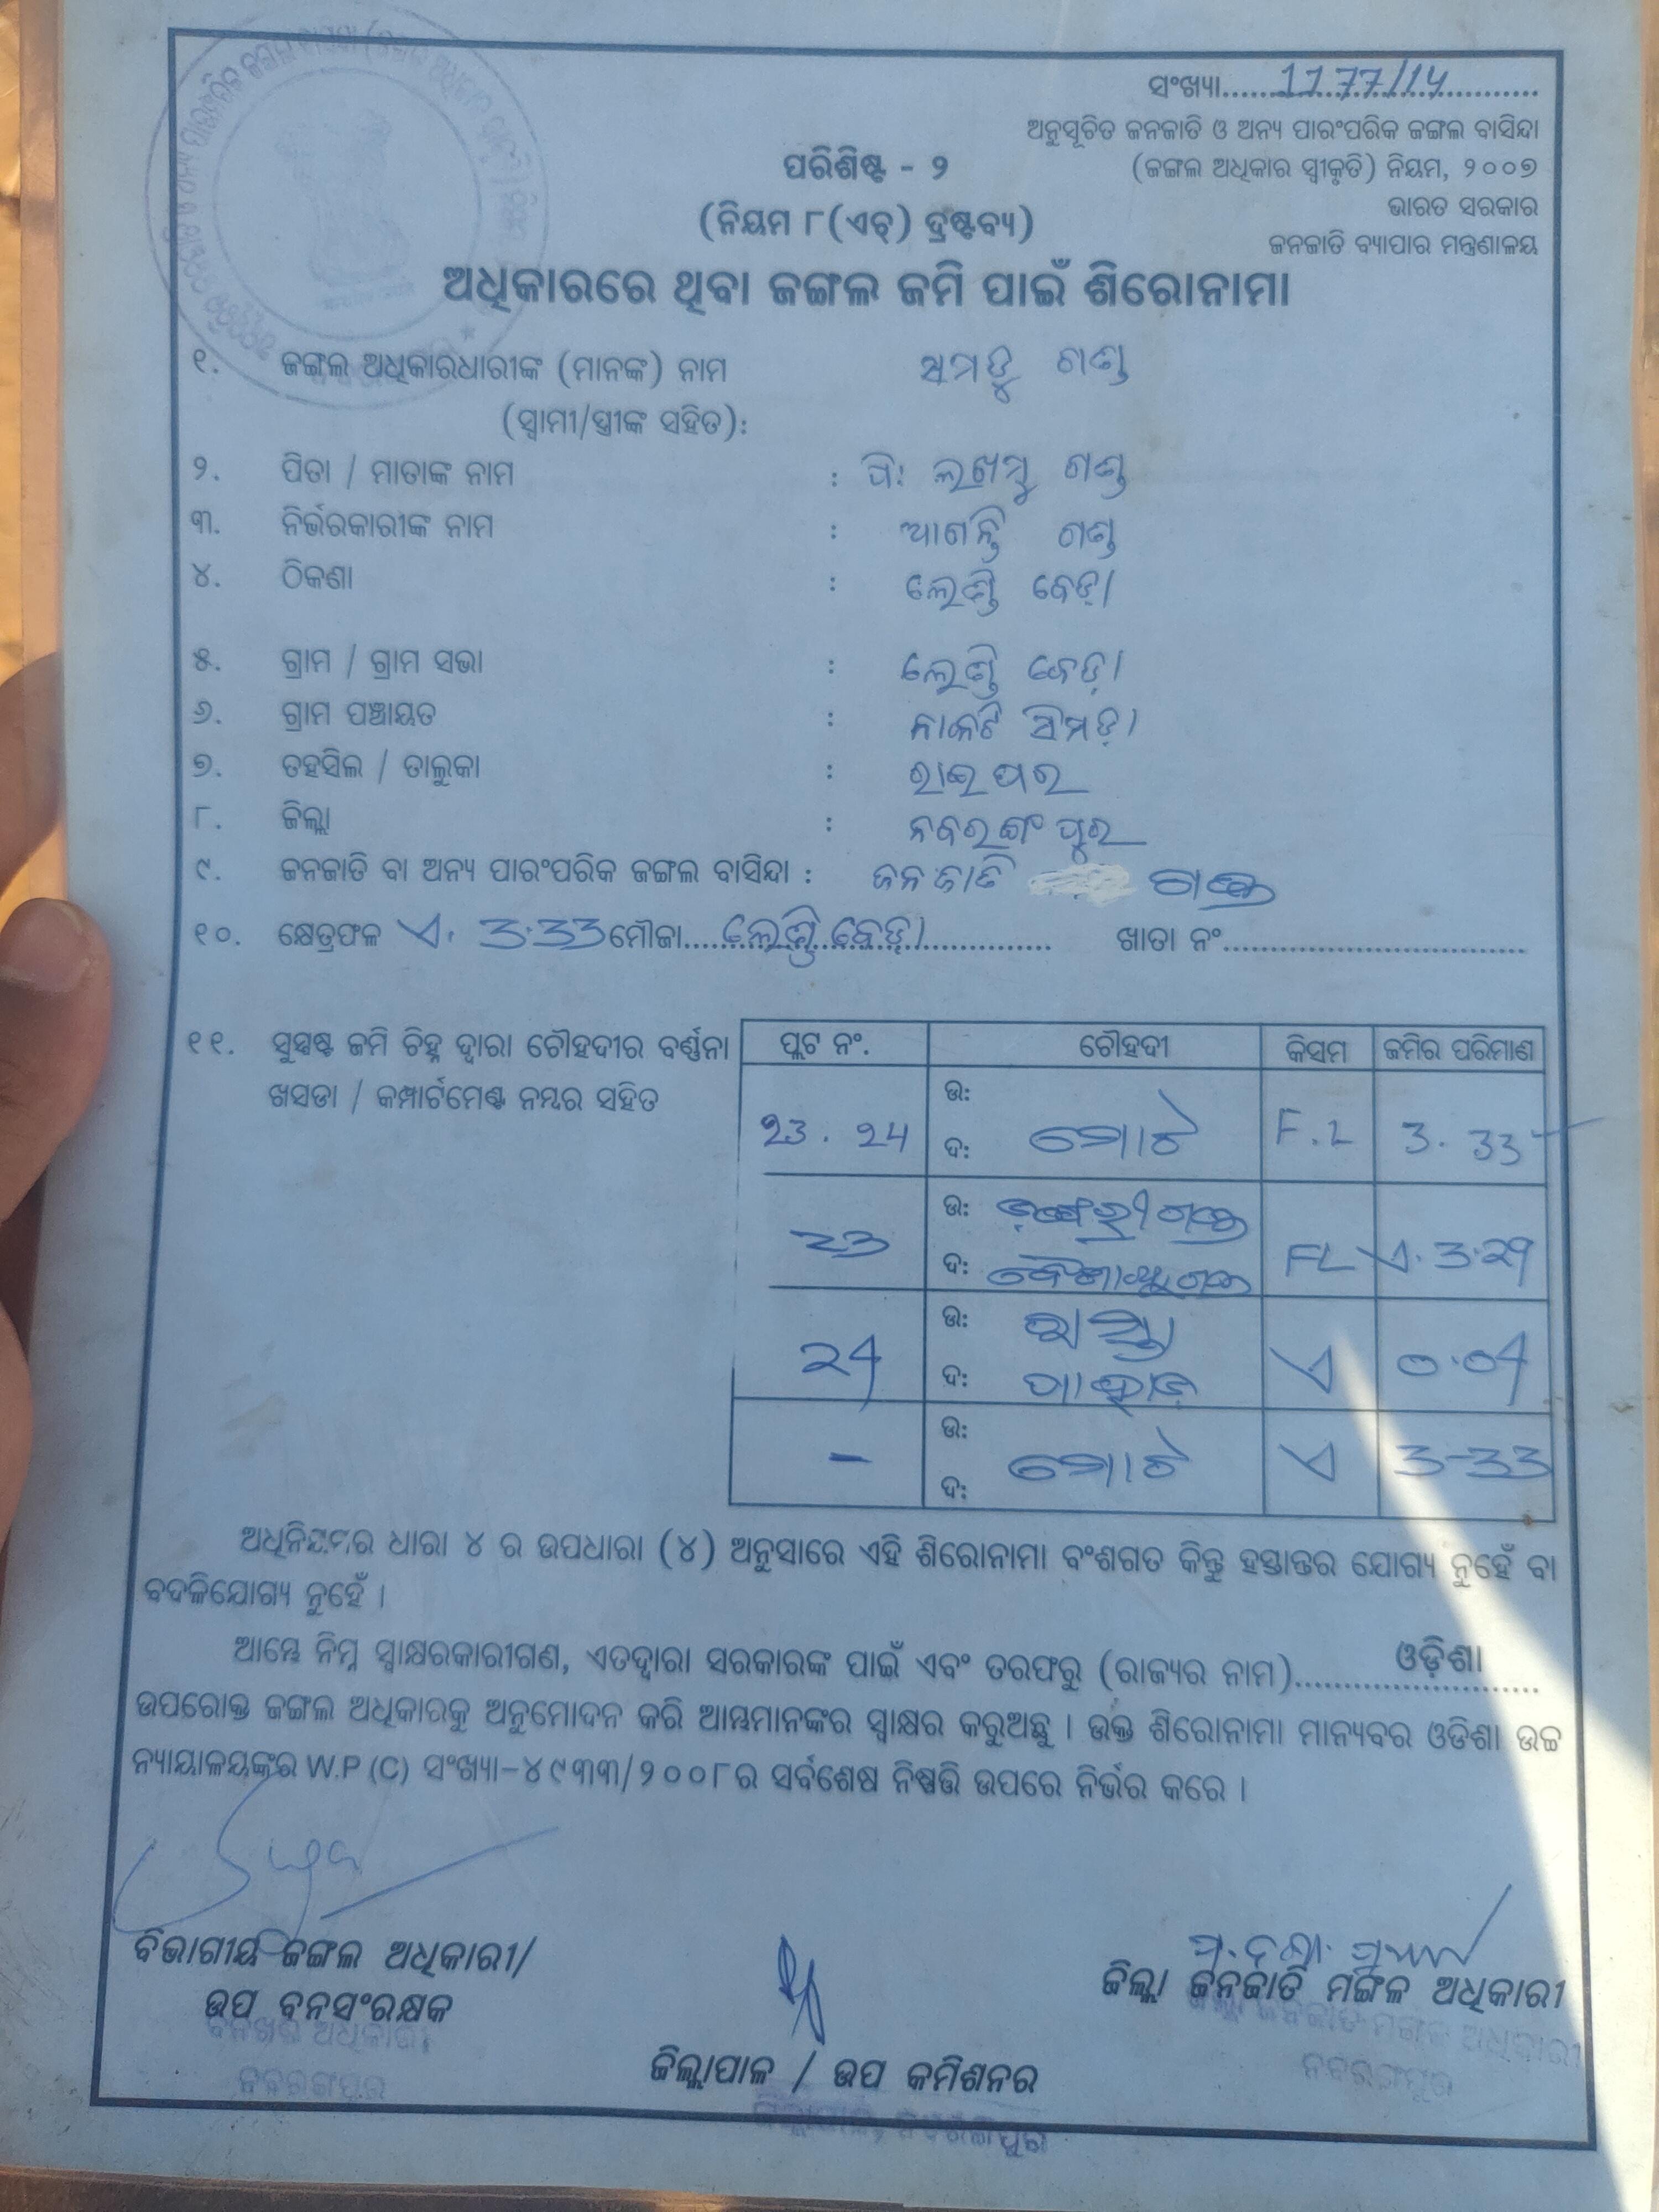 ସଂଖ୍ୟା............1177/14............
ଅନୁସୂଚିତ ଜନଜାତି ଓ ଅନ୍ୟ ପାରଂପରିକ ଜଙ୍ଗଲ ବାସିନ୍ଦା
ପରିଶିଷ୍ଟ - ୨
(ଜଙ୍ଗଲ ଅଧିକାର ସ୍ୱୀକୃତି) ନିୟମ, ୨୦୦୭
(ନିୟମ ୮(ଏଚ୍) ଦ୍ରଷ୍ଟବ୍ୟ)
ଭାରତ ସରକାର
ଜନଜାତି ବ୍ୟାପାର ମନ୍ତ୍ରଣାଳୟ
ଅଧିକାରରେ ଥିବା ଜଙ୍ଗଲ ଜମି ପାଇଁ ଶିରୋନାମା
୧. ଜଙ୍ଗଲ ଅଧିକାରଧାରୀଙ୍କ (ମାନଙ୍କ) ନାମ ଗଣ୍ଡ
(ସ୍ୱାମୀ/ସ୍ତ୍ରୀଙ୍କ ସହିତ):
୨. ପିତା / ମାତାଙ୍କ ନାମ : ପି: ଲଖମୁ ଗଣ୍ଡ
୩. ନିର୍ଭରକାରୀଙ୍କ ନାମ : ଗଣ୍ଡ
୪. ଠିକଣା : ଲେଣ୍ଡି ବେଡ଼ା
୫. ଗ୍ରାମ / ଗ୍ରାମ ସଭା : ଲେଣ୍ଡି ବେଡ଼ା
୬. ଗ୍ରାମ ପଞ୍ଚାୟତ : ସିମଡ଼ା
୭. ତହସିଲ / ତାଲୁକା : ରାଇଘର
୮. ଜିଲ୍ଲା : ନବରଙ୍ଗପୁର
୯. ଜନଜାତି ବା ଅନ୍ୟ ପାରଂପରିକ ଜଙ୍ଗଲ ବାସିନ୍ଦା : ଜନଜାତି ଗଣ୍ଡ
୧୦. କ୍ଷେତ୍ରଫଳ ଏ. 3.33 ମୌଜା....ଲେଣ୍ଡିବେଡ଼ା............ ଖାତା ନଂ..............................
୧୧. ସୁସ୍ପଷ୍ଟ ଜମି ଚିହ୍ନ ଦ୍ୱାରା ଚୌହଦୀର ବର୍ଣ୍ଣନା
ଖସଡା / କମ୍ପାର୍ଟମେଣ୍ଟ ନମ୍ବର ସହିତ
ପ୍ଲଟ ନଂ. ଚୌହଦୀ କିସମ ଜମିର ପରିମାଣ
ଉ:
23. 24 ଦ: ମୋଟ F.L 3.33
ଉ: ଗଣ୍ଡ
23 ଦ: ଗଣ୍ଡ FL ଏ. 3.29
ଉ: ରାସ୍ତା
24 ଦ: ପାହାଡ଼ ଏ 0.04
ଉ:
- ମୋଟ ଏ 3-33
ଦ:
ଅଧିନିୟମର ଧାରା ୪ ର ଉପଧାରା (୪) ଅନୁସାରେ ଏହି ଶିରୋନାମା ବଂଶଗତ କିନ୍ତୁ ହସ୍ତାନ୍ତର ଯୋଗ୍ୟ ନୁହେଁ ବା
ବଦଳିଯୋଗ୍ୟ ନୁହେଁ ।
ଆମ୍ଭେ ନିମ୍ନ ସ୍ୱାକ୍ଷରକାରୀଗଣ, ଏତଦ୍ୱାରା ସରକାରଙ୍କ ପାଇଁ ଏବଂ ତରଫରୁ (ରାଜ୍ୟର ନାମ).......ଓଡ଼ିଶା.......
ଉପରୋକ୍ତ ଜଙ୍ଗଲ ଅଧିକାରକୁ ଅନୁମୋଦନ କରି ଆମ୍ଭମାନଙ୍କର ସ୍ୱାକ୍ଷର କରୁଅଛୁ । ଉକ୍ତ ଶିରୋନାମା ମାନ୍ୟବର ଓଡିଶା ଉଚ୍ଚ
ନ୍ୟାୟାଳୟଙ୍କର W.P (C) ସଂଖ୍ୟା-୪୯୩୩/୨୦୦୮ର ସର୍ବଶେଷ ନିଷ୍ପତ୍ତି ଉପରେ ନିର୍ଭର କରେ ।
ବିଭାଗୀୟ ଜଙ୍ଗଲ ଅଧିକାରୀ/
ଉପ ବନସଂରକ୍ଷକ
ଜିଲ୍ଲା ଜନଜାତି ମଙ୍ଗଳ ଅଧିକାରୀ
ବନଖଣ୍ଡ ଅଧିକାରୀ
ନବରଙ୍ଗପୁର
ଜିଲ୍ଲା ଜନଜାତି ମଙ୍ଗଳ ଅଧିକାରୀ
ନବରଙ୍ଗପୁର
ଜିଲ୍ଲାପାଳ / ଉପ କମିଶନର
ଜିଲ୍ଲାପାଳ, ନବରଙ୍ଗପୁର